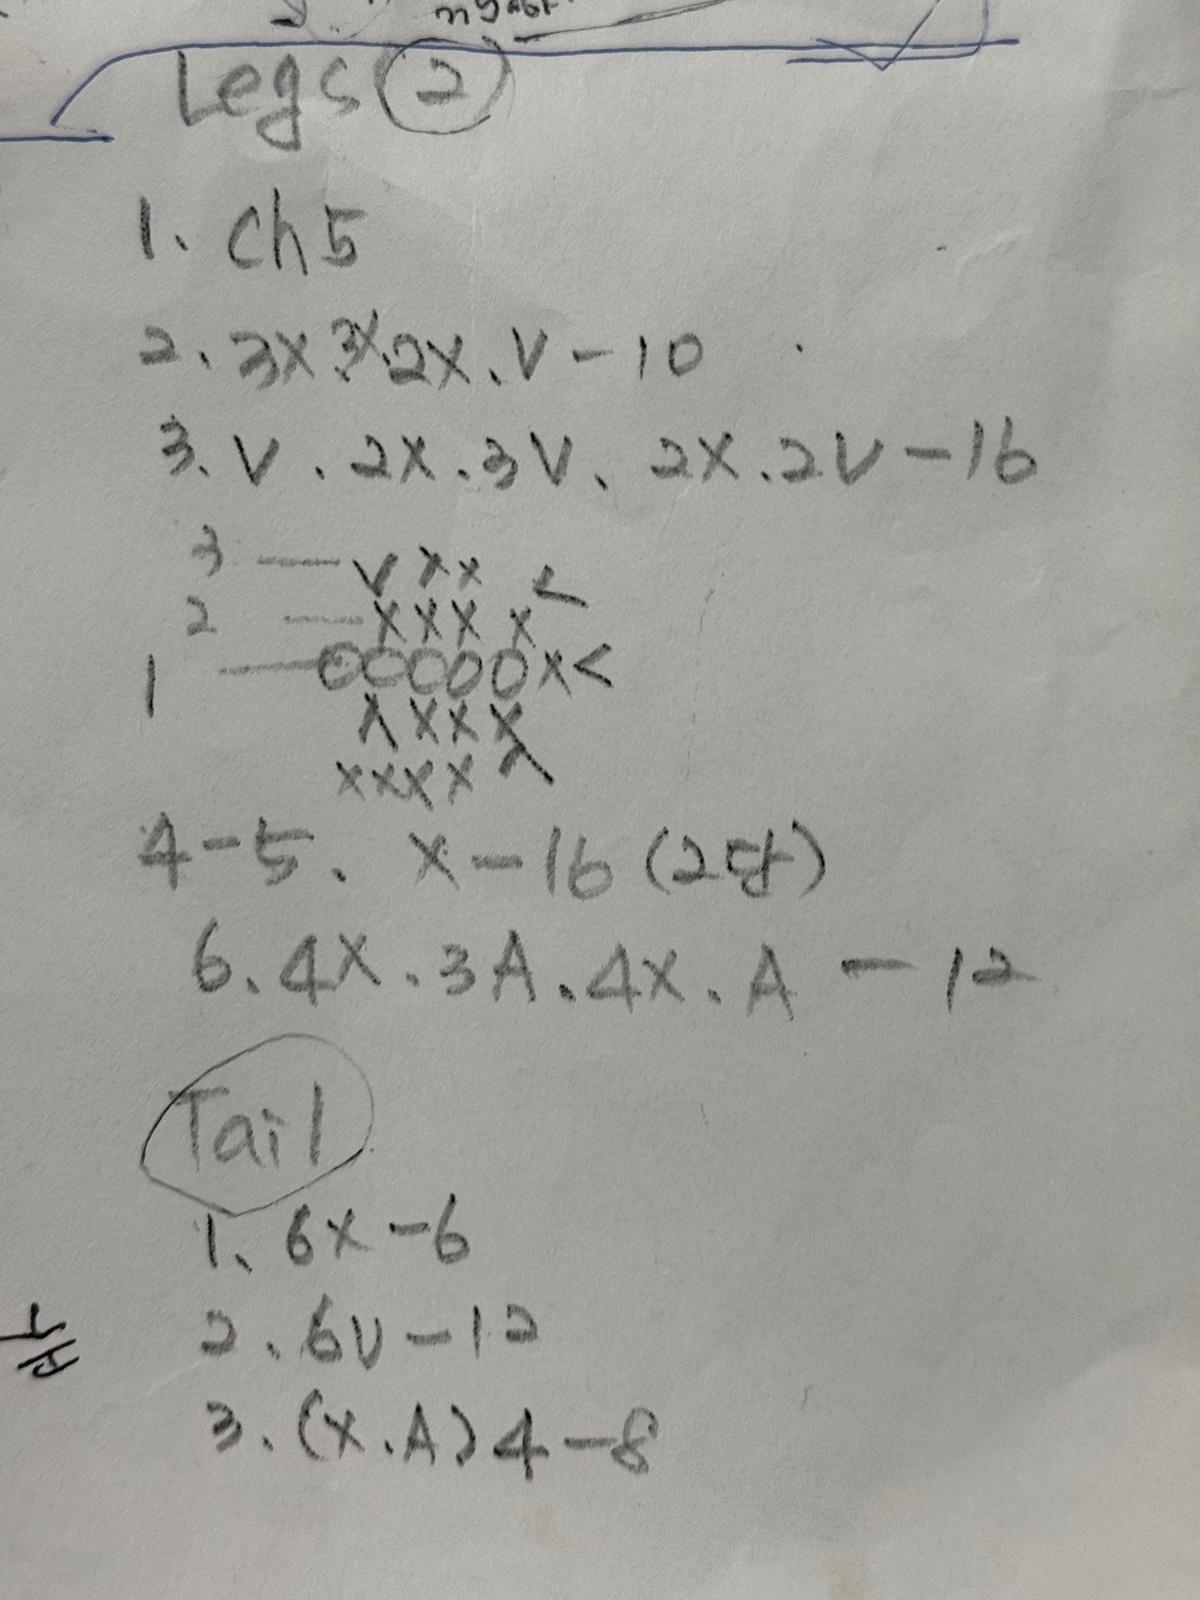 Legs 2
1. Ch5
2. 3X 3X. 2X. V - 10
3. V. 2X. 3V. 2X. 2V - 16
3 — V X X <
2 — X X X X
1 — O O O O O X <
X X X X
X X X X ^
4-5. X - 16 (2단)
6. 4X. 3A. 4X. A - 12
Tail
1. 6X - 6
2. 6V - 12
3. (X. A) 4 - 8